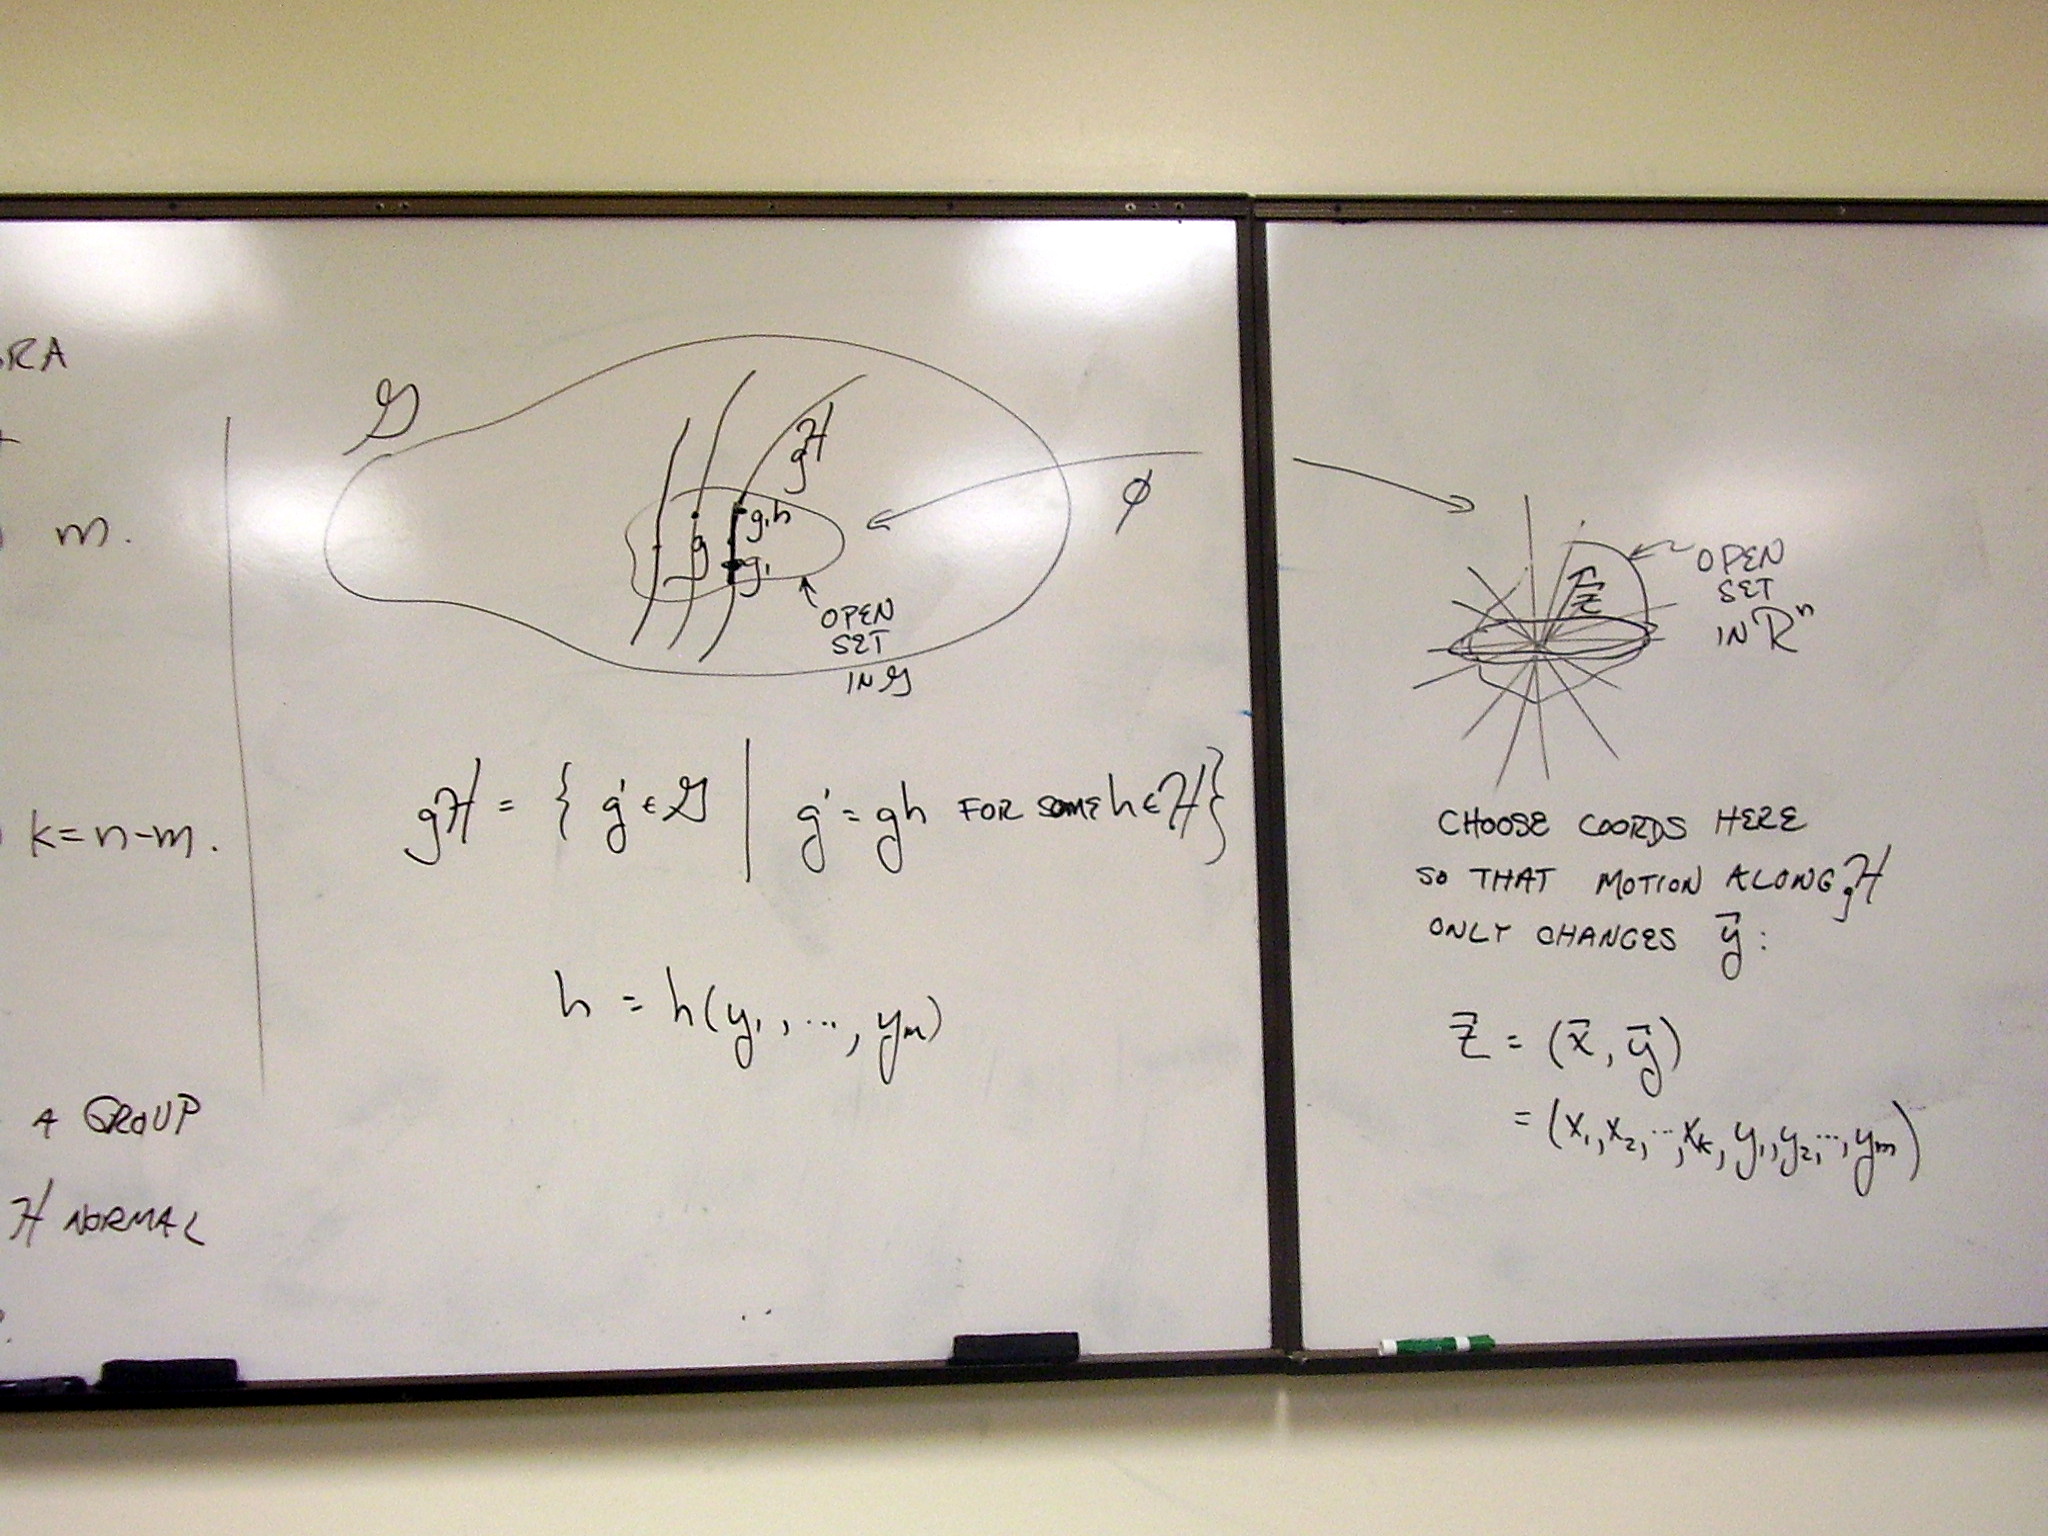 RA
m.
k=n-m.
A GROUP
H NORMAL
G
gH
g
g₁h
g₁
OPEN
SET
IN G
ϕ
gH = { g' ∈ G | g' = gh FOR SOME h ∈ H }
h = h(y₁, ..., yₘ)
z⃗
OPEN
SET
IN Rⁿ
CHOOSE COORDS HERE
SO THAT MOTION ALONG gH
ONLY CHANGES y⃗ :
z⃗ = (x⃗, y⃗)
= (x₁, x₂, ..., xₖ, y₁, y₂, ..., yₘ)